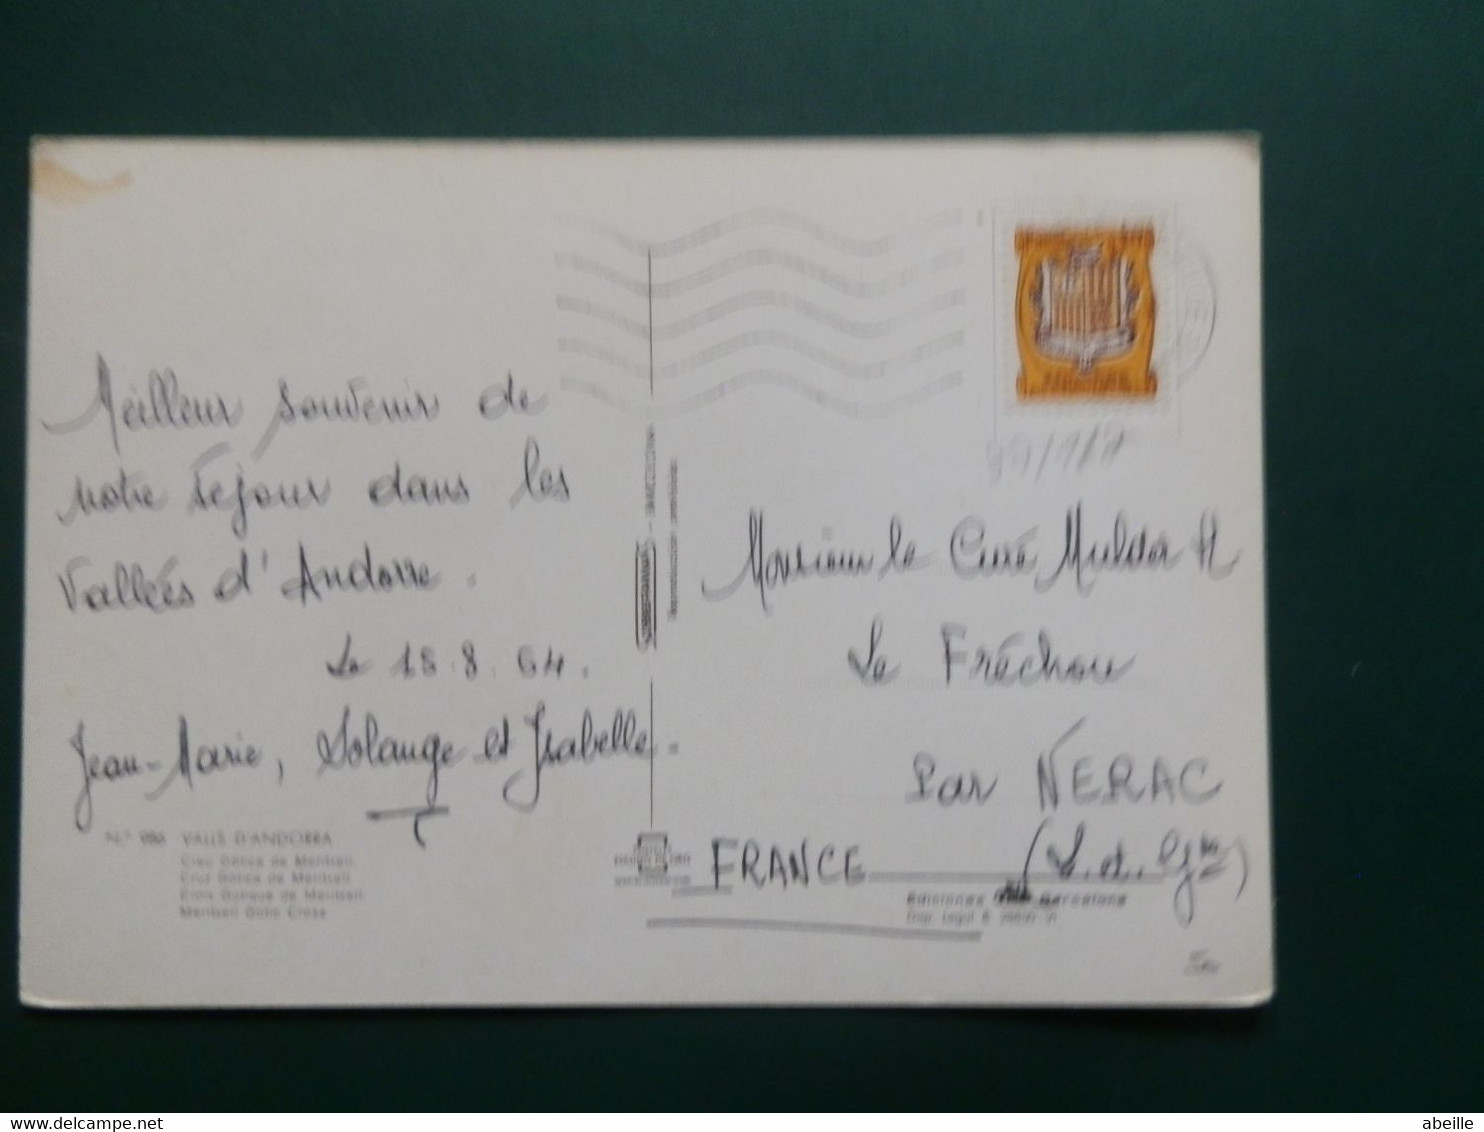 Meilleur souvenir de
notre séjour dans les
Vallées d'Andorre.
Le 18.8.64.
Jean-Marie, Solange et Isabelle.
N.°
VALLS D'ANDORRA
Creu Gótica de Meritxell
Cruz Gótica de Meritxell
Croix Gothique de Meritxell
Meritxell Gotic Cross
Monsieur le Curé Mulder H
Le Fréchou
par NERAC
FRANCE (L. et. Gne)
Ediciones Barcelona
Dep. Legal B.
abeille